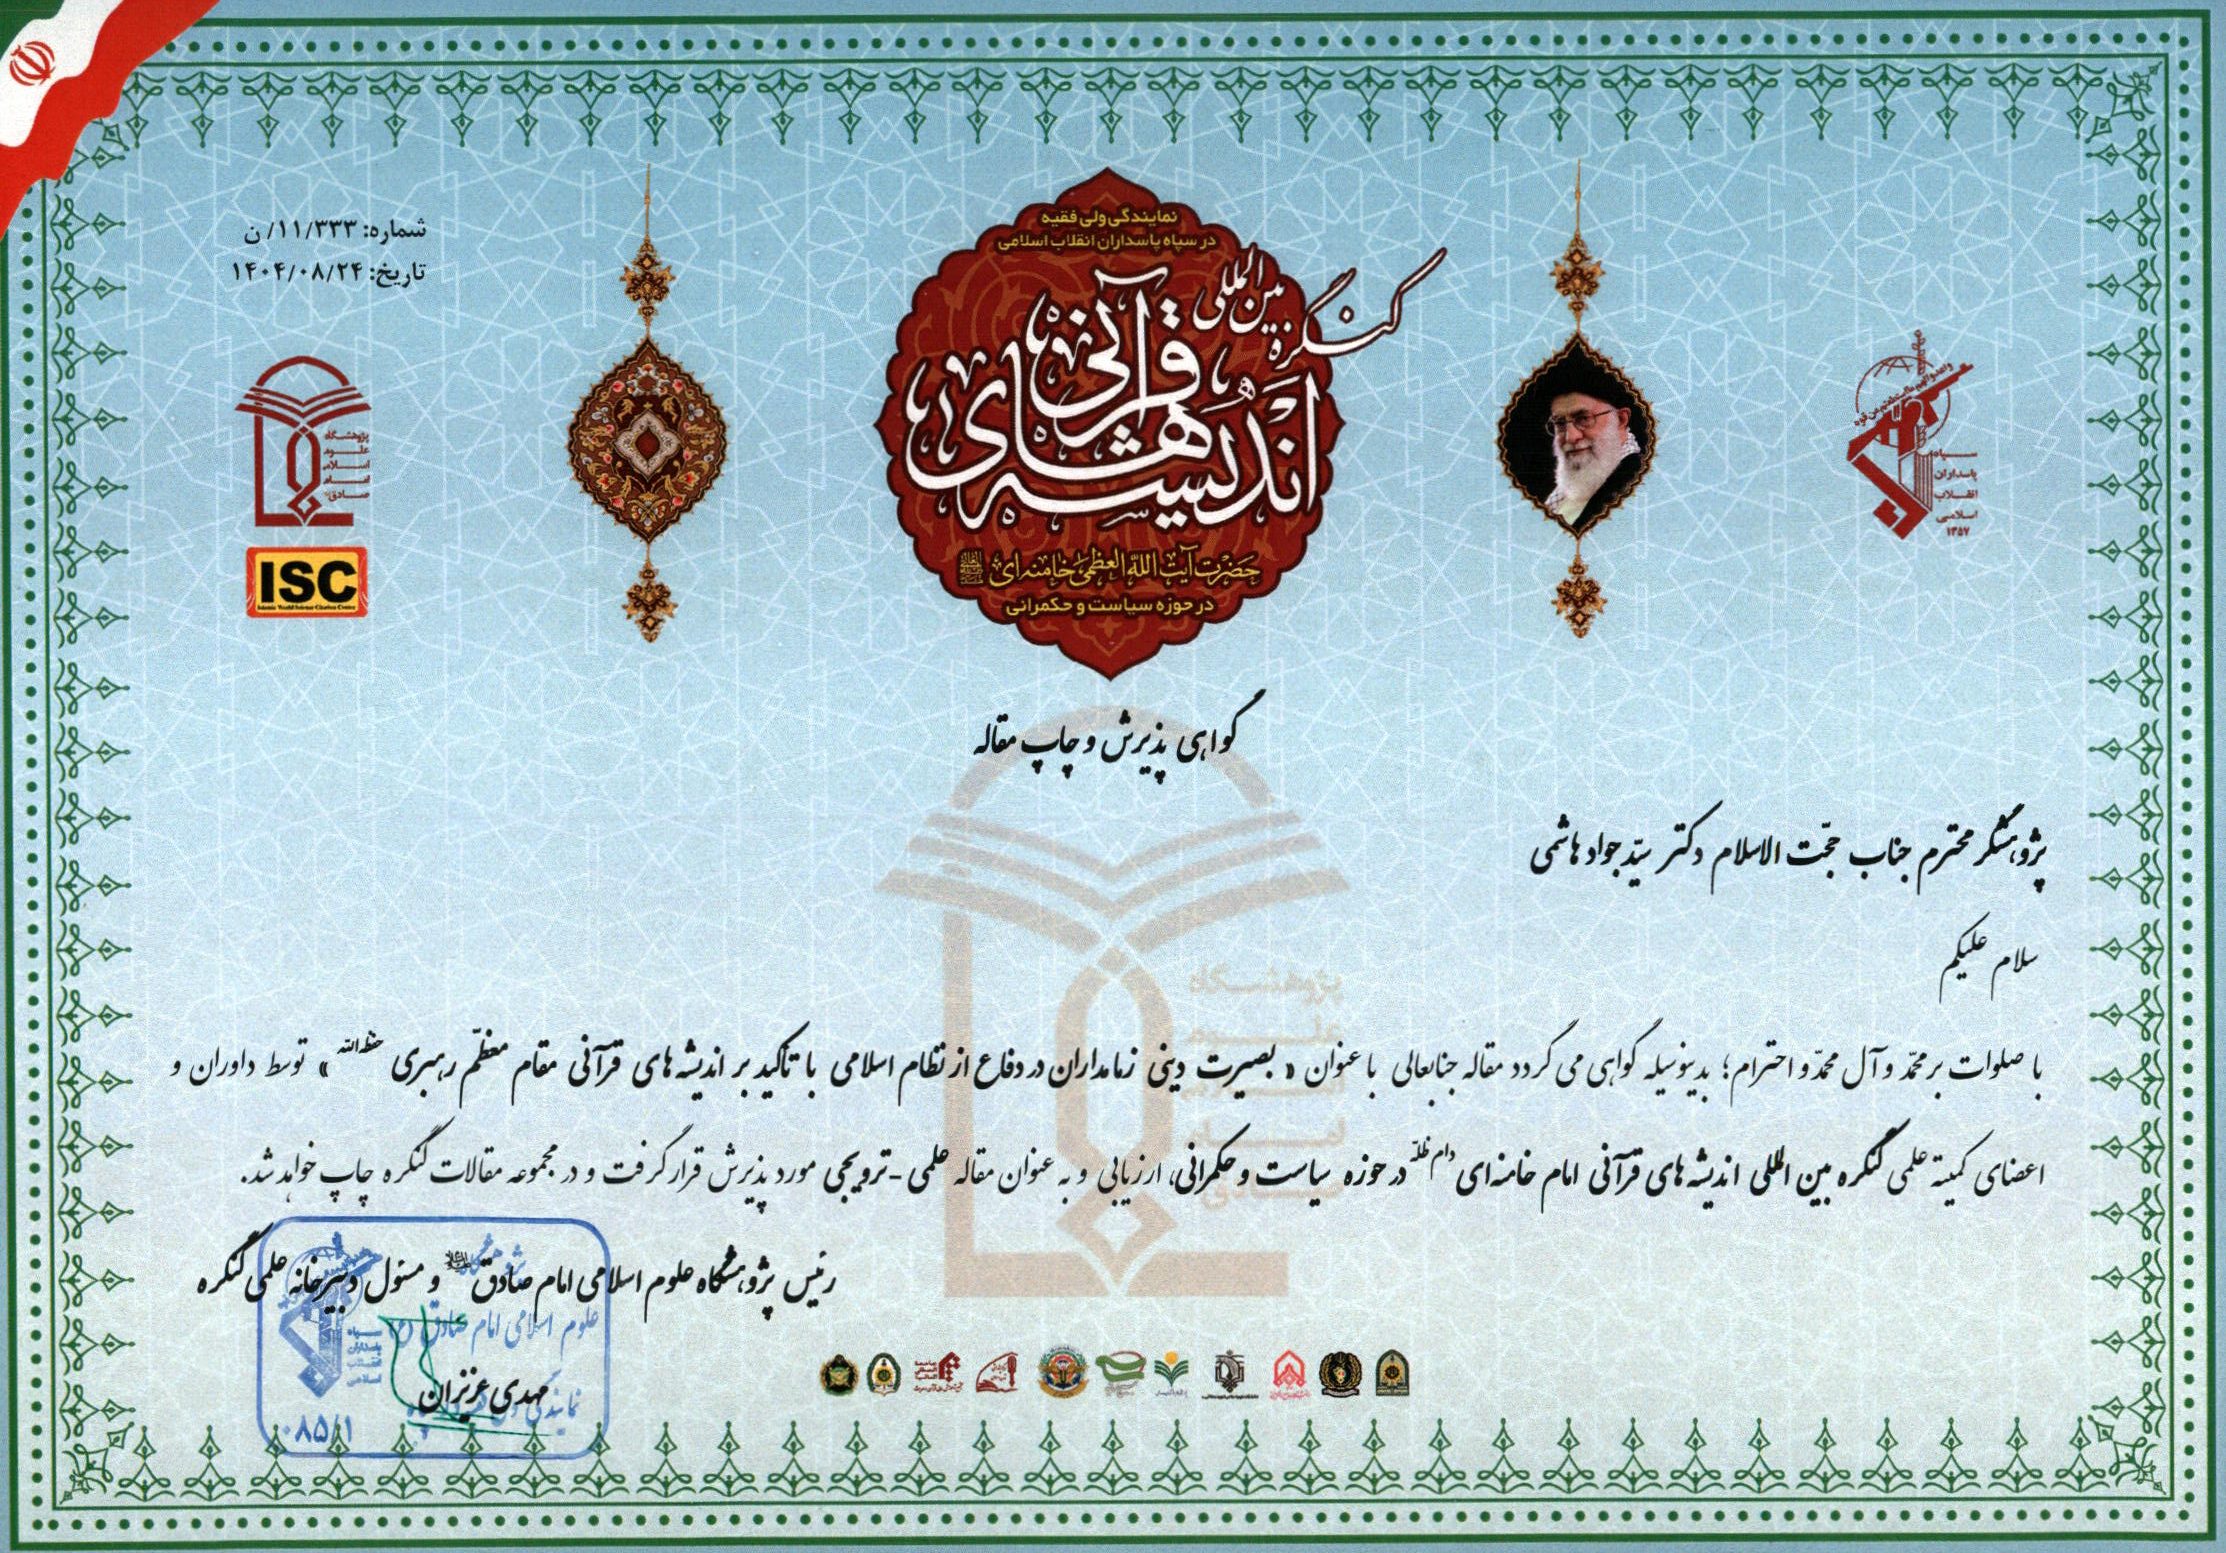 شماره: ۱۱/۳۳۳/ن
تاریخ: ۱۴۰۴/۰۸/۲۴
نمایندگی ولی فقیه
در سپاه پاسداران انقلاب اسلامی
کنگره بین المللی
اندیشه های قرآنی
حضرت آیت الله العظمی خامنه ای
در حوزه سیاست و حکمرانی
سپاه
پاسداران
انقلاب
اسلامی
۱۳۵۷
پژوهشگاه
علوم
اسلامی
امام
صادق
ISC
Islamic World Science Citation Center
گواهی پذیرش و چاپ مقاله
پژوهشگر محترم جناب حجّت الاسلام دکتر سیّد جواد هاشمی
سلام علیکم
با صلوات بر محمّد و آل محمّد و احترام؛ بدینوسیله گواهی می گردد مقاله جنابعالی با عنوان « بصیرت دینی زمامداران در دفاع از نظام اسلامی با تاکید بر اندیشه های قرآنی مقام معظّم رهبری حفظه الله » توسط داوران و
اعضای کمیته علمی کنگره بین المللی اندیشه های قرآنی امام خامنه ای دام ظلّه در حوزه سیاست و حکمرانی، ارزیابی و به عنوان مقاله علمی - ترویجی مورد پذیرش قرار گرفت و در مجموعه مقالات کنگره چاپ خواهد شد.
رئیس پژوهشگاه علوم اسلامی امام صادق و مسئول دبیرخانه علمی کنگره
علوم اسلامی امام صادق (ع)
مهدی عزیزان
۰۸۵/۱